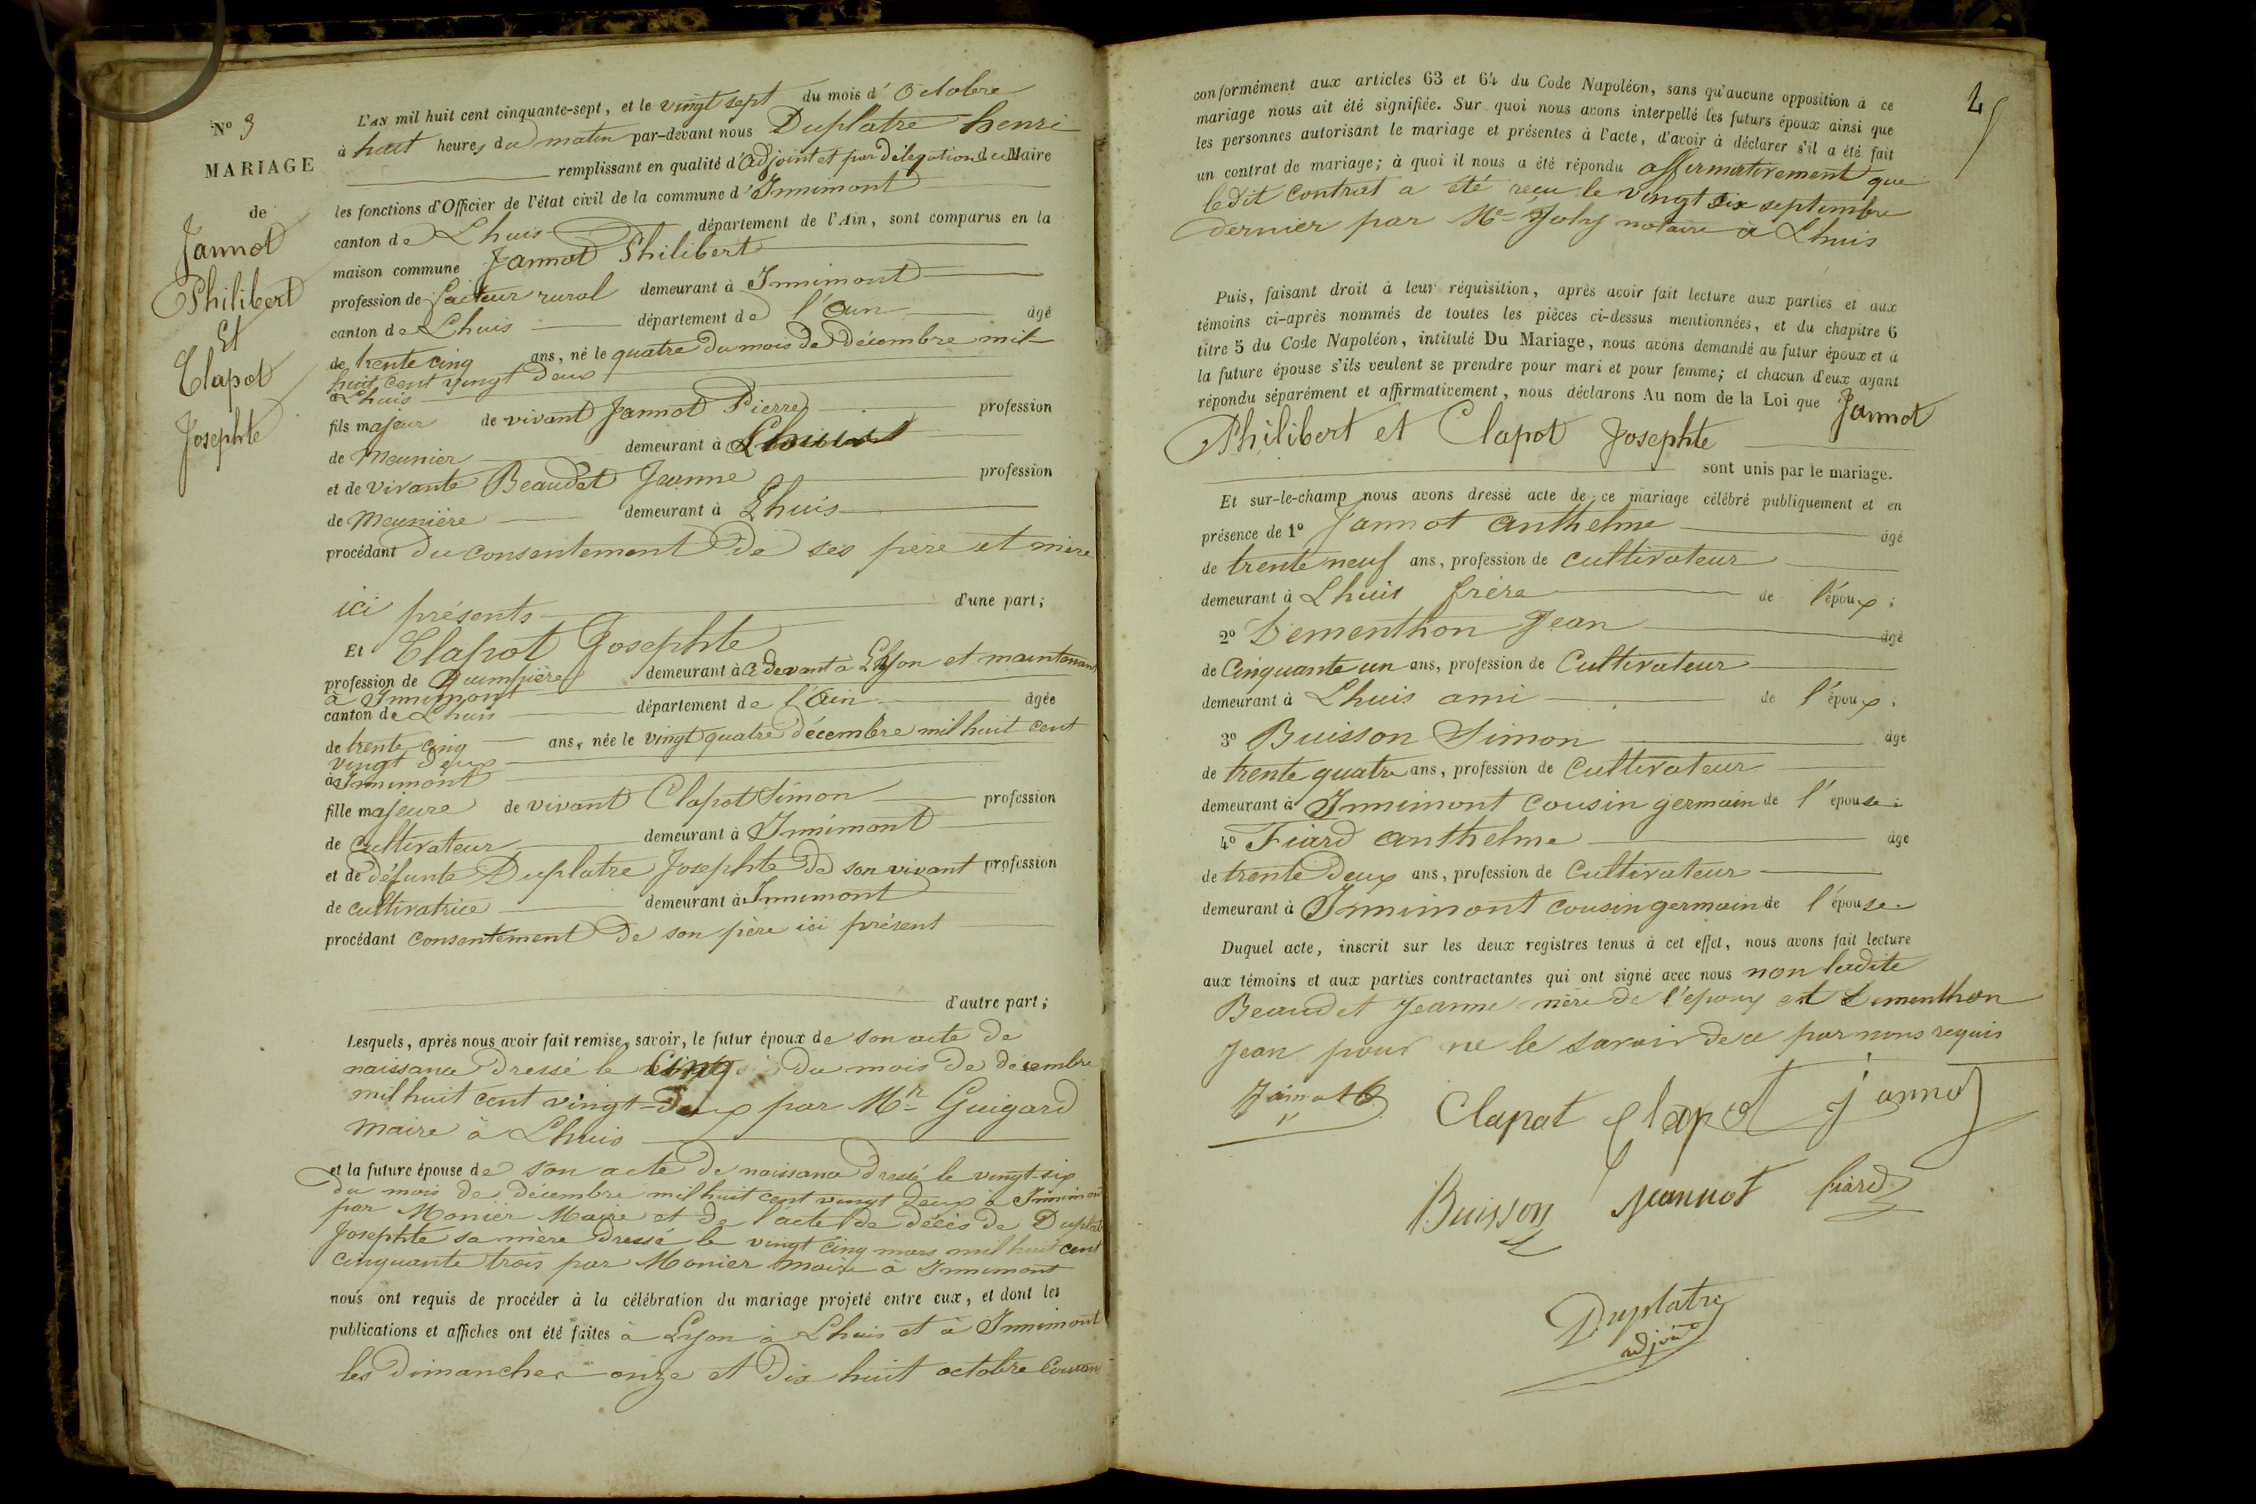 N° 3
MARIAGE
de
Jannot
Philibert
Et
Clapot
Josephte
L'AN mil huit cent cinquante-sept, et le vingt sept du mois d'Octobre
à huit heures du matin par-devant nous Duplatre henri
remplissant en qualité d'adjoint et par délégation du Maire
les fonctions d'Officier de l'état civil de la commune d'Innimont
canton de Lhuis département de l'Ain, sont comparus en la
maison commune Jannot Philibert
profession de facteur rural demeurant à Innimont
canton de Lhuis département de l'Ain âgé
de trente cinq ans, né le quatre du mois de décembre mil
huit cent vingt deux
à Lhuis
fils majeur de vivant Jannot Pierre profession
de Meunier demeurant à Lhuis
et de vivante Beaudet Jeanne profession
de Meunière demeurant à Lhuis
procédant du consentement de ses père et mère
ici présents d'une part;
Et Clapot Josephte
profession de Guimpière demeurant à ci devant à Lyon et maintenant
à Innimont
canton de Lhuis département de l'Ain âgée
de trente cinq ans, née le vingt quatre décembre mil huit cent
vingt deux
à Innimont
fille majeure de vivant Clapot Simon profession
de cultivateur demeurant à Innimont
et de défunte Duplatre Josephte de son vivant profession
de cultivatrice demeurant à Innimont
procédant consentement de son père ici présent
d'autre part;
Lesquels, après nous avoir fait remise, savoir, le futur époux de son acte de
naissance dressé le cinq du mois de décembre
mil huit cent vingt-deux par Mr Guigard
maire à Lhuis
et la future épouse de son acte de naissance dressé le vingt-six
du mois de décembre mil huit cent vingt deux à Innimont
par Monier Maire et de l'acte de décès de Duplat
Josephte sa mère dressé le vingt cinq mars mil huit cent
cinquante trois par Monier maire à Innimont
nous ont requis de procéder à la célébration du mariage projeté entre eux, et dont les
publications et affiches ont été faites à Lyon à Lhuis et à Innimont
les dimanches onze et dix huit octobre courant
conformément aux articles 63 et 64 du Code Napoléon, sans qu'aucune opposition à ce
mariage nous ait été signifiée. Sur quoi nous avons interpellé les futurs époux ainsi que
les personnes autorisant le mariage et présentes à l'acte, d'avoir à déclarer s'il a été fait
un contrat de mariage; à quoi il nous a été répondu affirmativement que
ledit contrat a été reçu le vingt six septembre
dernier par Me Joly notaire à Lhuis
Puis, faisant droit à leur réquisition, après avoir fait lecture aux parties et aux
témoins ci-après nommés de toutes les pièces ci-dessus mentionnées, et du chapitre 6
titre 5 du Code Napoléon, intitulé Du Mariage, nous avons demandé au futur époux et à
la future épouse s'ils veulent se prendre pour mari et pour femme; et chacun d'eux ayant
répondu séparément et affirmativement, nous déclarons Au nom de la Loi que Jannot
Philibert et Clapot Josephte
sont unis par le mariage.
Et sur-le-champ nous avons dressé acte de ce mariage célébré publiquement et en
présence de 1° Jannot anthelme âgé
de trente neuf ans, profession de cultivateur
demeurant à Lhuis frère de l'époux;
2° Dementhon Jean âgé
de Cinquante un ans, profession de Cultivateur
demeurant à Lhuis ami de l'époux;
3° Buisson Simon âgé
de trente quatre ans, profession de Cultivateur
demeurant à Innimont cousin germain de l'épouse;
4° Fiard anthelme âgé
de trente deux ans, profession de Cultivateur
demeurant à Innimont cousin germain de l'épouse.
Duquel acte, inscrit sur les deux registres tenus à cet effet, nous avons fait lecture
aux témoins et aux parties contractantes qui ont signé avec nous non ladite
Beaudet Jeanne mère de l'époux et Dementhon
Jean pour ne le savoir de ce par nous requis
Clapot Clapot jannot
Buisson Jeannot fiard
Duplatre
adjoint